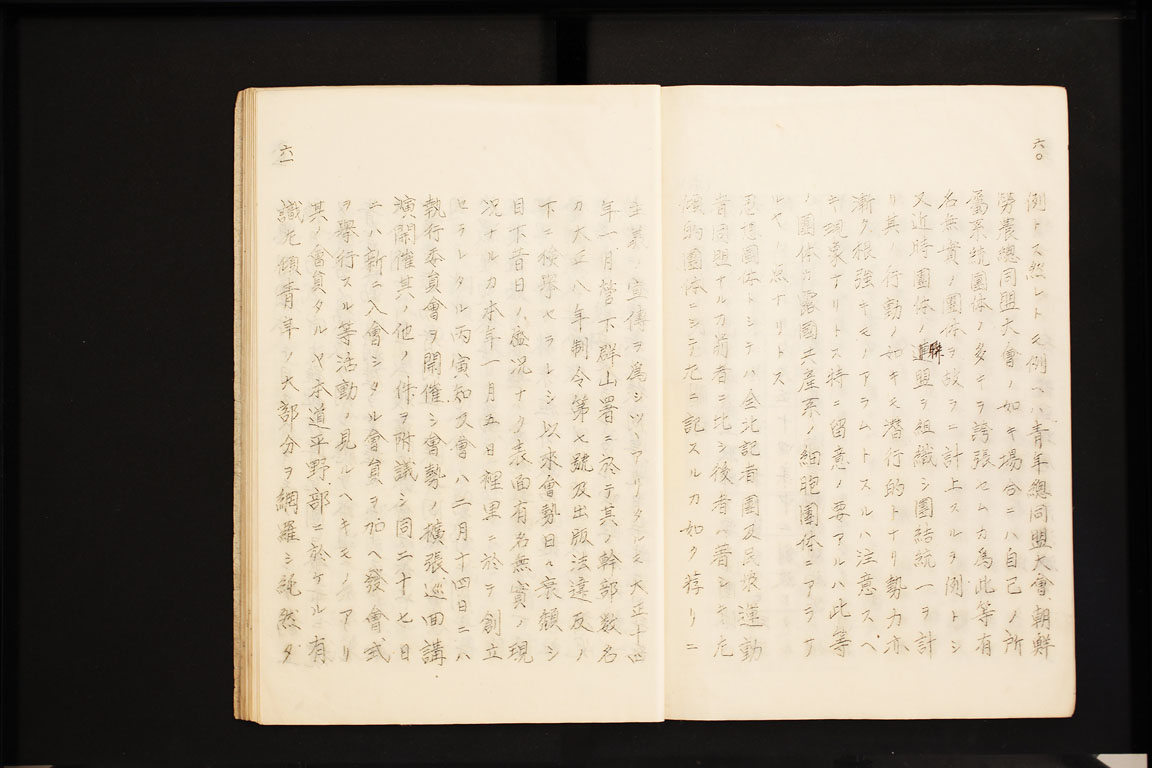 六〇
例トス然レトモ例ヘハ青年總同盟大會、朝鮮
勞農總同盟大會ノ如キ場合ニハ自己ノ所
屬系統團体ノ多キヲ誇張セムカ為此等有
名無實ノ團体ヲ故ラニ計上スルヲ例トシ
又近時團体ノ聯盟ヲ組織シ團結統一ヲ計
リ其ノ行動ノ如キモ潜行的トナリ勢力亦
漸ク根強キモノアラムトスルハ注意スヘ
キ現象ナリトス特ニ留意ノ要アルハ此等
ノ團体カ露國共產系ノ細胞團体ニアラサ
ルヤノ点ナリトス
思想團体トシテハ全北記者團及民衆運動
者同盟ナルカ前者ニ比シ後者ハ著シキ左
傾的團体ニシテ左ニ記スルカ如ク荐リニ
六一
主義ノ宣傳ヲ為シツヽアリタルモ大正十四
年一月管下群山署ニ於テ其ノ幹部数名
カ大正八年制令第七號及出版法違反ノ
下ニ檢擧セラレシ以來會勢日々衰頽シ
目下昔日ノ盛况ナク表面有名無實ノ現
况ナルカ本年一月五日裡里ニ於テ創立
セラレタル丙寅知友會ハ二月十四日ニハ
執行委員會ヲ開催シ會勢ノ擴張巡回講
演開催其ノ他ノ件ヲ附議シ同二十七日
ニハ新ニ入會シタル會員ヲ加ヘ發會式
ヲ擧行スル等活動ノ見ルヘキモノアリ
其ノ會員タルヤ本道平野部ニ於ケル有
識左傾青年ノ大部分ヲ網羅シ純然タ